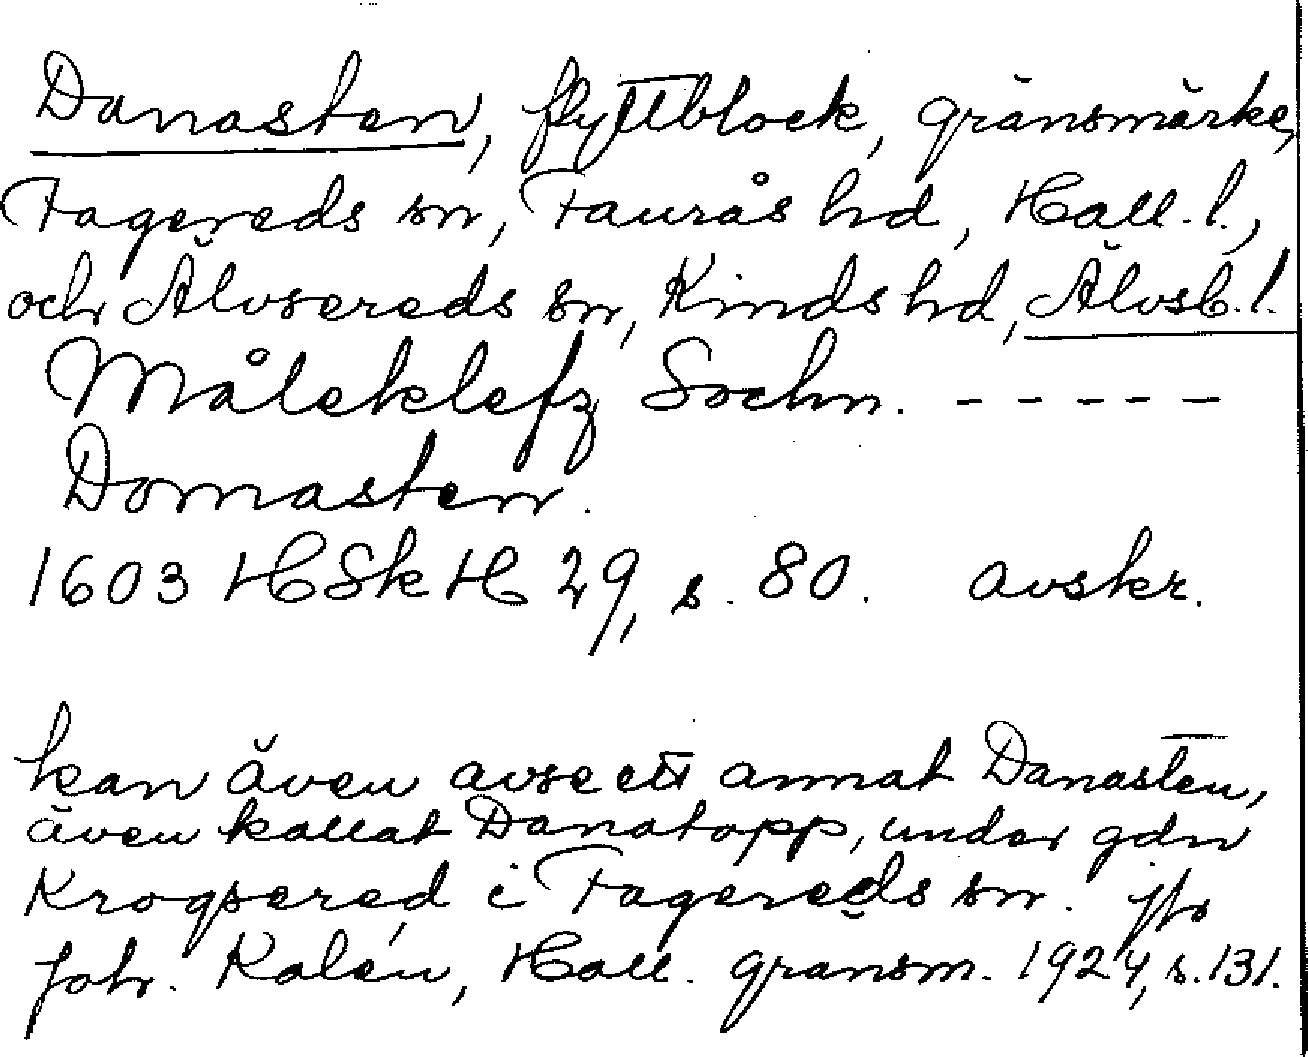 Danasten, flyttblock, gränsmärke,
Fagereds sn, Faurås hd, Hall. l.,
och Älvsereds sn, Kinds hd, Älvsb. l.
Måleklefz Sochn. - - - - -
Domasten.
1603 HSkH 29, s. 80. avskr.
kan även avse ett annat Danasten,
även kallat Danatopp, under gdn
Krogsered i Fagereds sn. jfr
Joh. Kalén, Hall. gränsm. 1924, s. 131.